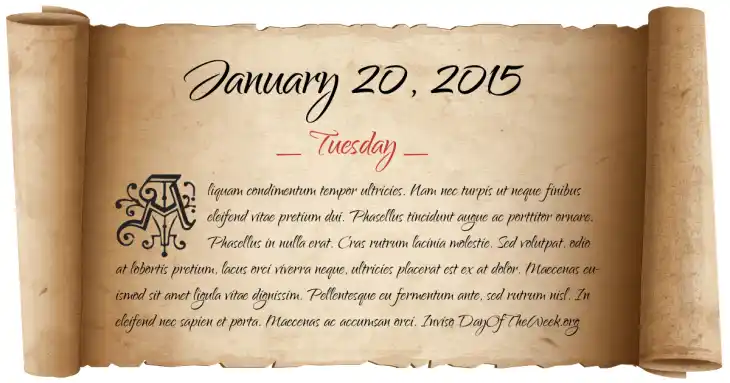 January 20, 2015
_ Tuesday _
Aliquam condimentum tempor ultricies. Nam nec turpis ut neque finibus
eleifend vitae pretium dui. Phasellus tincidunt augue ac porttitor ornare.
Phasellus in nulla erat. Cras rutrum lacinia molestie. Sed volutpat, odio
at lobortis pretium, lacus orci viverra neque, ultricies placerat est ex at dolor. Maecenas eu-
ismod sit amet ligula vitae dignissim. Pellentesque eu fermentum ante, sed rutrum nisl. In
eleifend nec sapien et porta. Maecenas ac accumsan orci. Invisq DayOfTheWeek.org